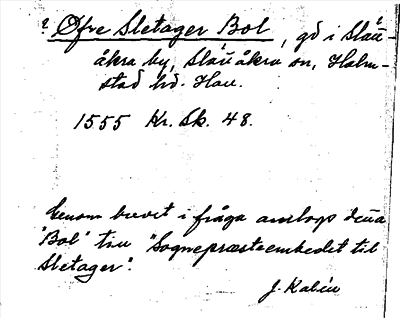 ? Öfre Sletager Bol, gd i Slätt-
åkra by, Slättåkra sn, Halm-
stad hd. Hall.
1555 Kr. Sk. 48.
Genom brevet i fråga anslogs denna
"Bol" till "Sognepræsteemkedet til
Sletager".
J. Kalén